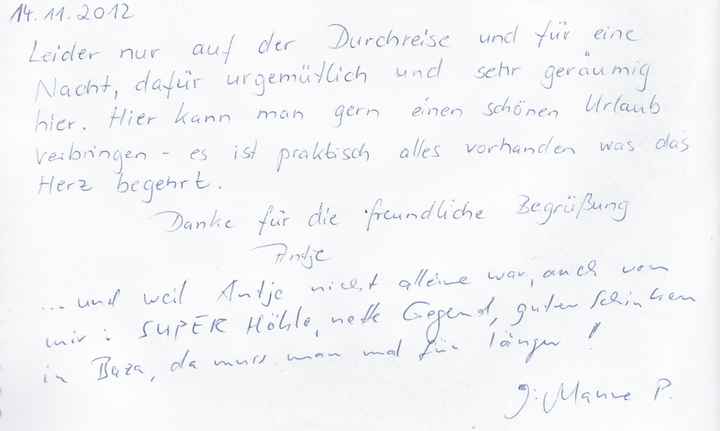 14.11.2012
Leider nur auf der Durchreise und für eine
Nacht, dafür urgemütlich und sehr geräumig
hier. Hier kann man gern einen schönen Urlaub
verbringen - es ist praktisch alles vorhanden was das
Herz begehrt.
Danke für die freundliche Begrüßung
Antje
... und weil Antje nicht alleine war, auch von
mir: SUPER Höhle, nette Gegend, guter Schinken
in Baza, da muss man mal für länger!
Manne P.